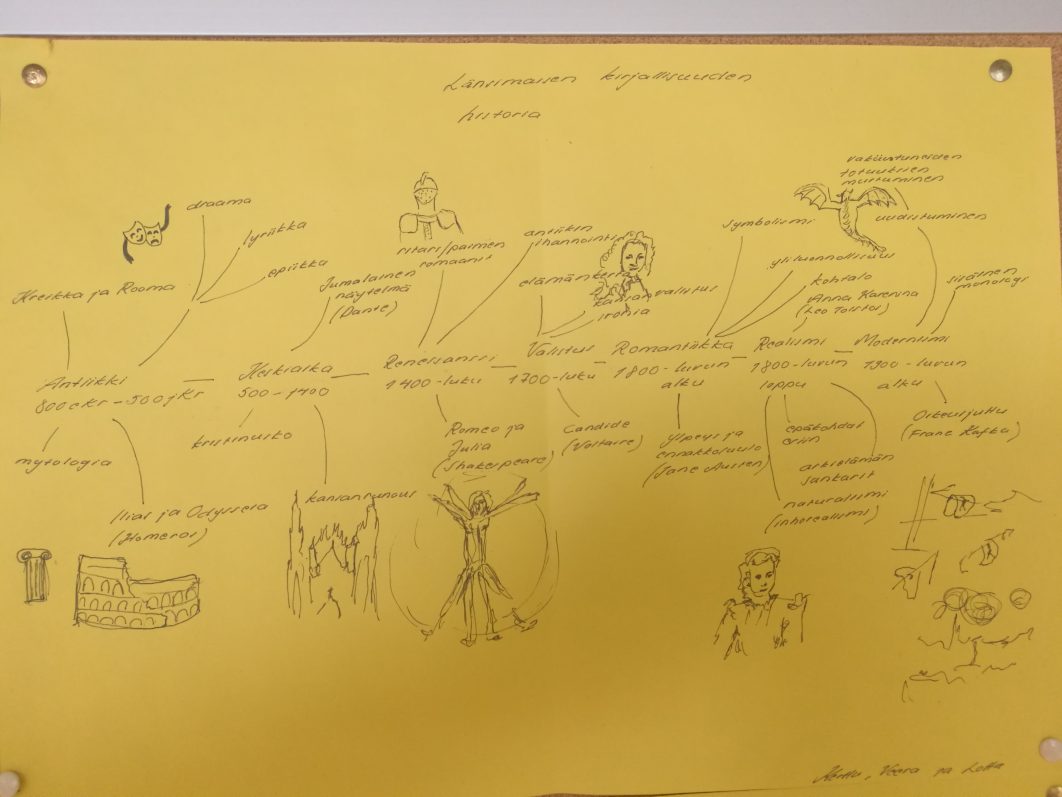 Länsimaisen kirjallisuuden
historia
draama
lyriikka
epiikka
Kreikka ja Rooma
Antiikki
800 eKr – 500 jKr
mytologia
Ilias ja Odysseia
(Homeros)
Jumalainen
näytelmä
(Dante)
Keskiaika
500 – 1400
kristinusko
kansanrunous
ritari/paimen
romaanit
antiikin
ihannointi
Renessanssi
1400-luku
Romeo ja
Julia
(Shakespeare)
elämänkerta
kansanvalistus
ironia
Valistus
1700-luku
Candide
(Voltaire)
symbolismi
yliluonnollisuus
kohtalo
Romantiikka
1800-luvun
alku
Ylpeys ja
ennakkoluulo
(Jane Austen)
Anna Karenina
(Leo Tolstoi)
Realismi
1800-luvun
loppu
epäkohdat
esiin
arkielämän
sankarit
naturalismi
(inhorealismi)
vakiintuneiden
totuuksien
murtuminen
uudistuminen
sisäinen
monologi
Modernismi
1900-luvun
alku
Oikeusjuttu
(Franz Kafka)
Veera ja Lotta